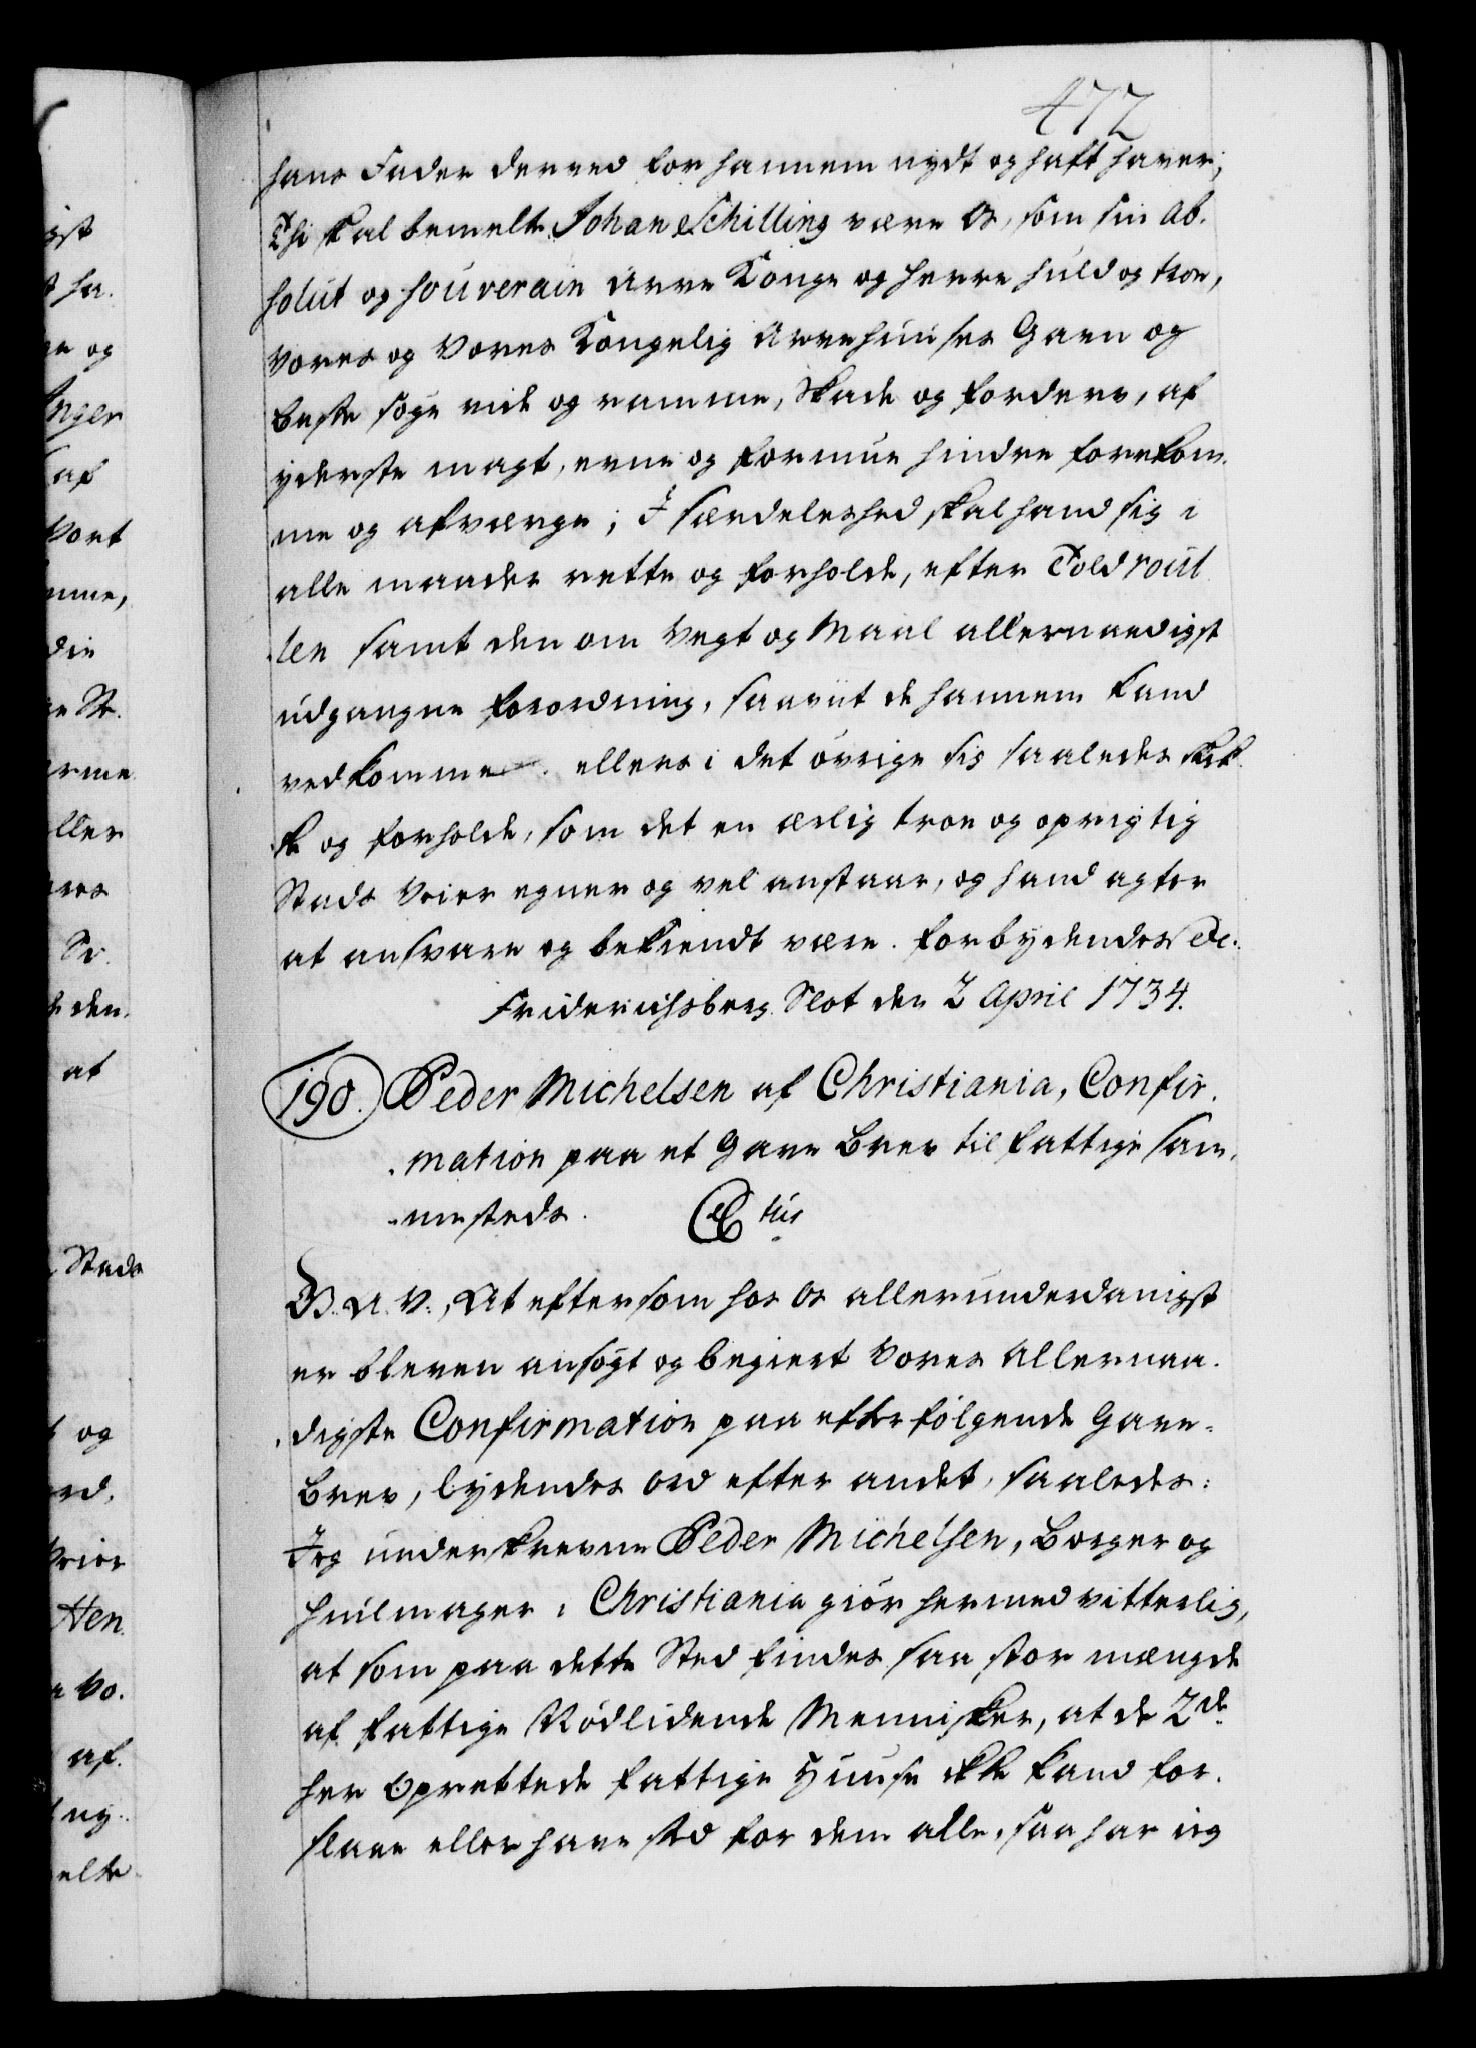 472
hans Fader derved for hannem nydt og haft haver;
Thi skal bemelte Johan Schilling være Os, som sin Ab-
solut og souverain Arve Konge og Herre huld og troe,
Vores og Vores Kongelig Arvehuuses Gavn og
beste søge vide og ramme, Skade og forderv, af
yderste magt, evne og formue hindre forekom-
me og afværge; I særdeleshed skal hand sig i
alle maader rette og forholde, efter Toldroul
len samt den om Vegt og Maal allernaadigst
udgangne forordning, saavit de hannem kand
vedkomme. ellers i det øvrige sig saaledes skik-
ke og forholde, som det en ærlig troe og oprigtig
Stads Veier egner og vel anstaar, og hand agter
at ansvare og bekiendt være. forbydendes etc.
Friderichsberg Slot den 2 April 1734.
190. Peder Michelsen af Christiania, Confir-
mation paa et Gave Brev til fattige sam-
mesteds.
G. A. V., At eftersom hos Os allerunderdanigst
er bleven ansøgt og begiert Vores Allernaa-
digste Confirmation paa efterfølgende Gave-
Brev, lydendes Ord efter andet, saaledes:
Jeg underskrevne Peder Michelsen, Borger og
Huulmager i Christiania giør hermed vitterlig,
at som paa dette Sted findes saa stor mængde
af fattige Nødlidende Mennisker, at de 2de
her Oprettede fattige Huuse ikke kand for-
slaae eller have sted for dem alle, saa har ieg
ist
ha-
og
Inger
af
Vort
die
ller
den
at
Stads
og
Veier
Hen
Vo-
af
ny-
elte